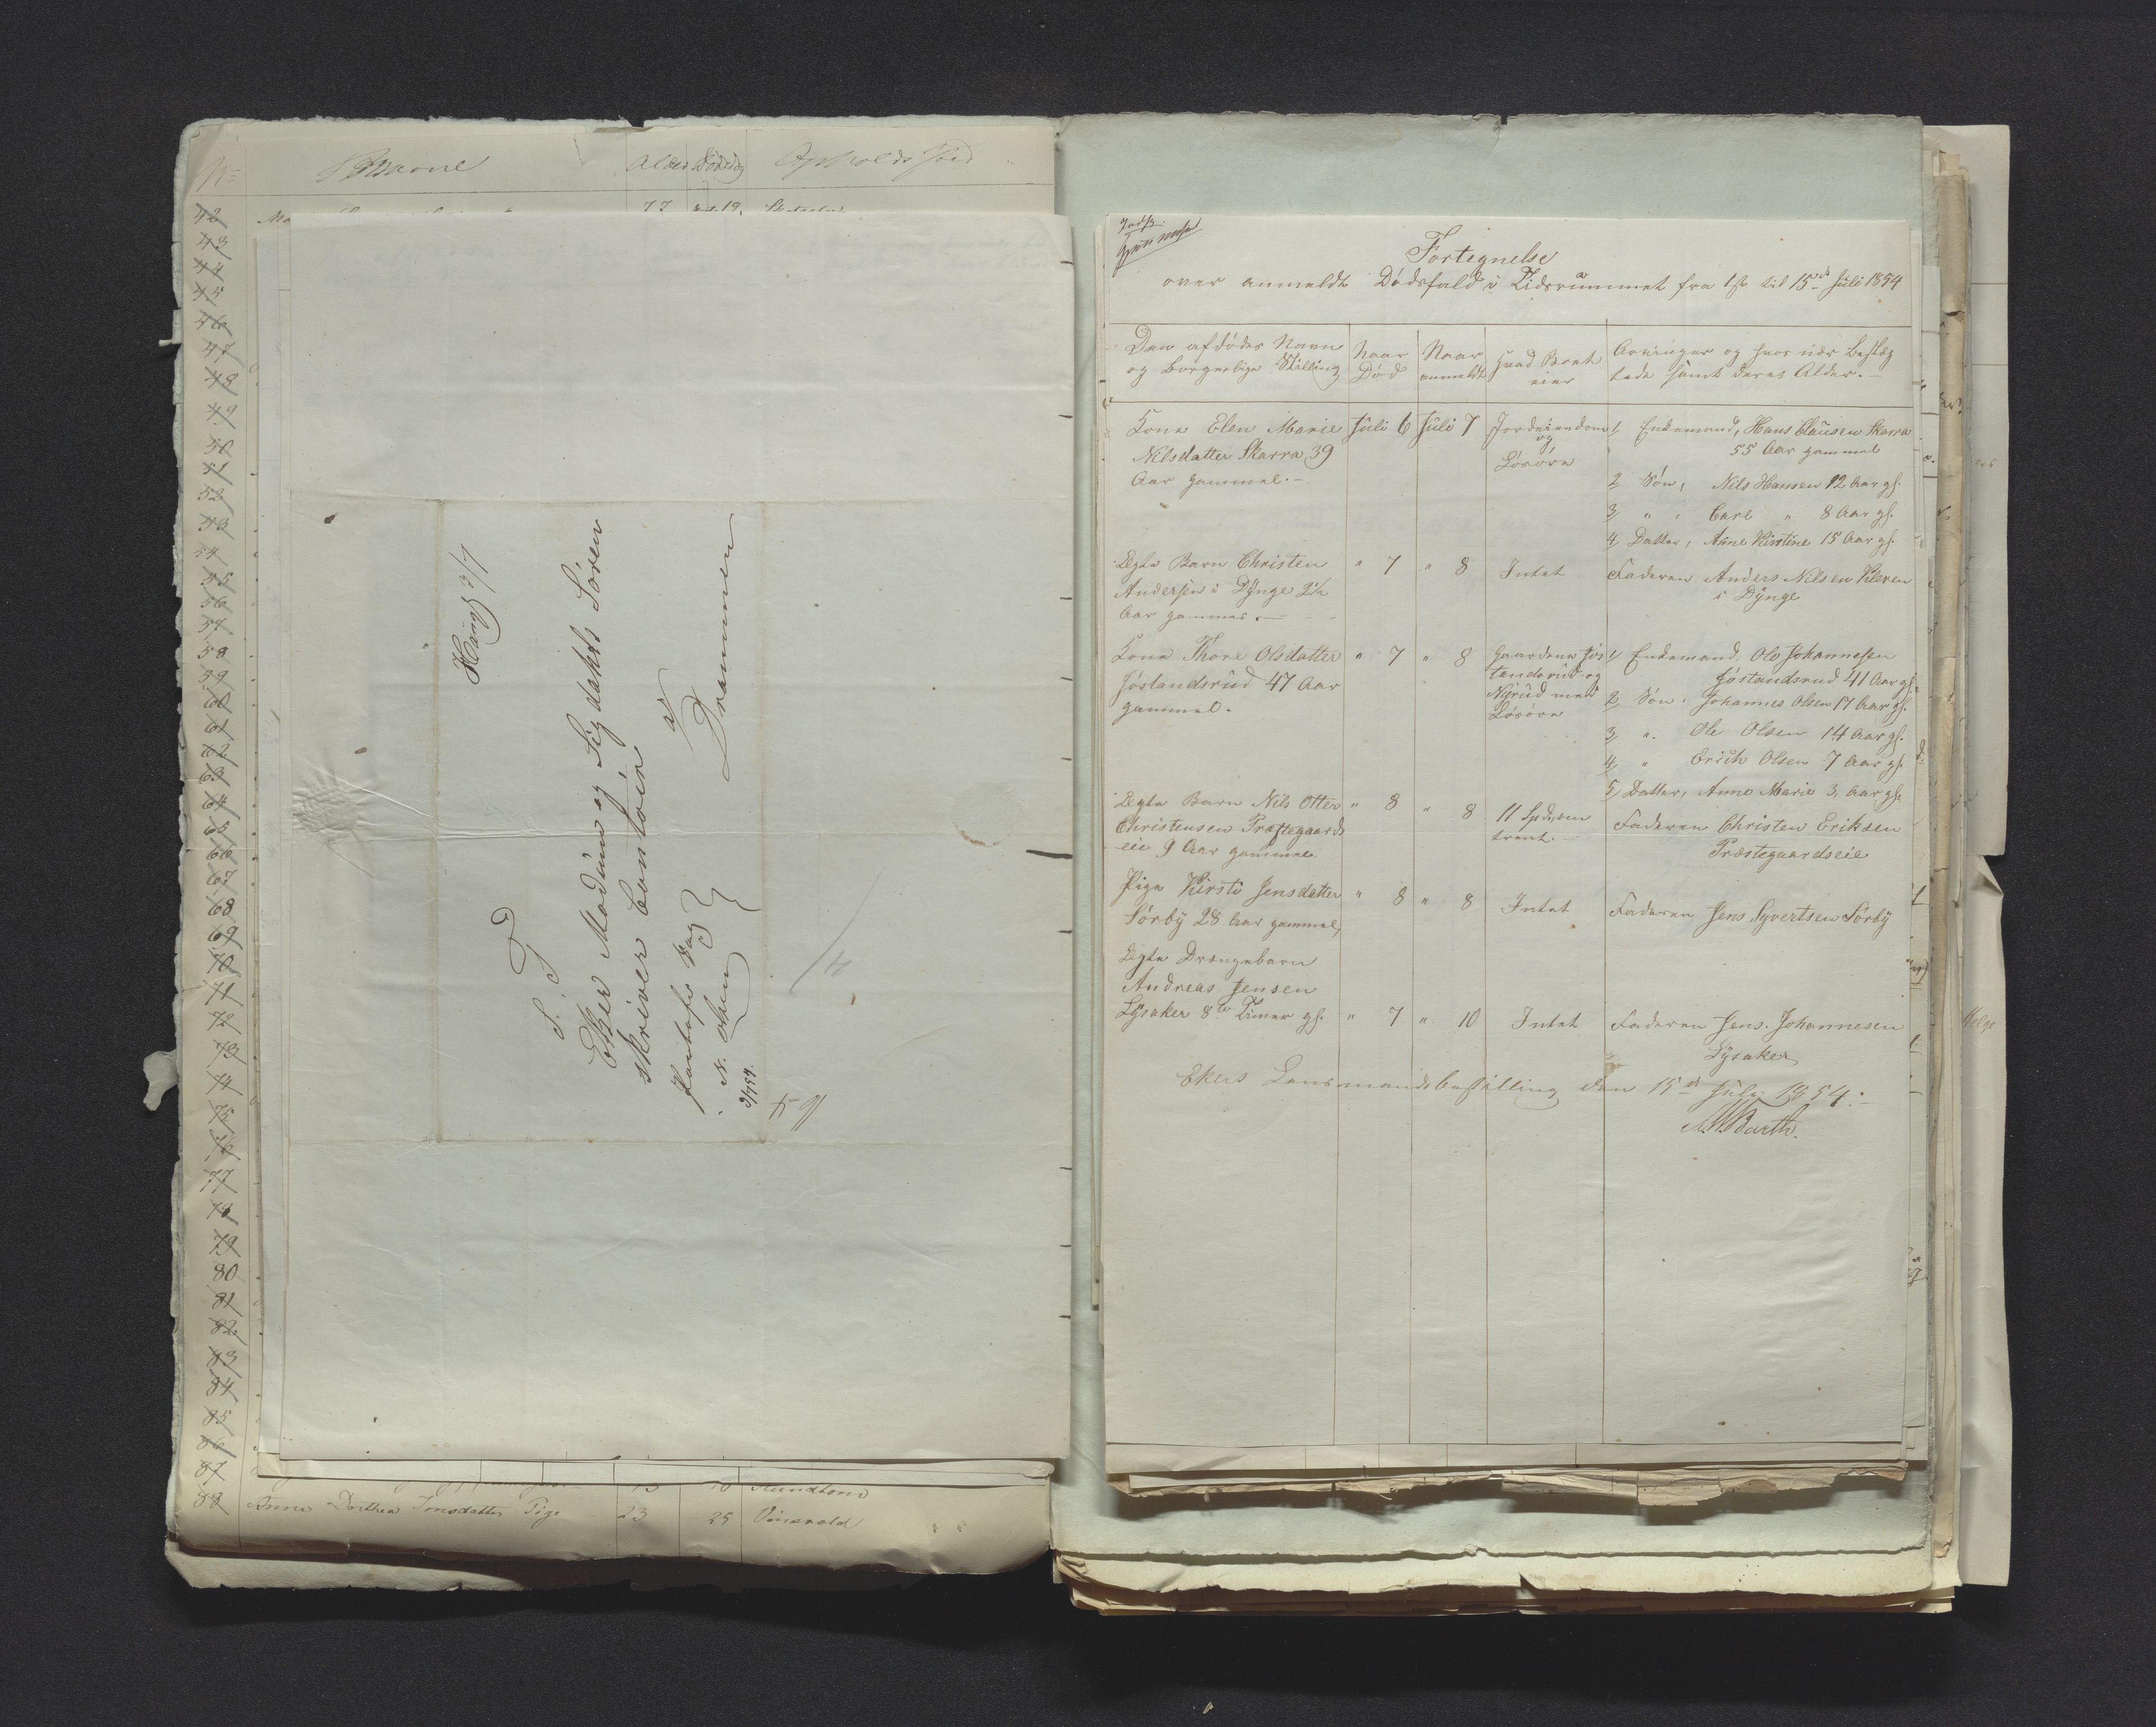 No Alder Dødsdag Opholdssted
42 77 19.
43
44
45
46
47
48
49
50
51
52
53
54
55
56
57
58
59
60
61
62
63
64
65
66
67
68
69
70
71
72
73
74
75
76
77
78
79
80
81
82
83
84
85
86
87
88 Anne Dorthea Jonsdatter Pige 23 25
Haug 3/7
S. T.
Eker Modum og Sigdahls Soren
skriver Contoir
a/
Drammen
Fortegnelse
over anmeldte Dødsfald i Tidsrummet fra 1ste til 15de Juli 1854
Den afdødes Navn og borgerlige Stilling
Naar Død
Naar anmeldt
Hvad Boet eier
Arvinger og hvor nær beslægtede samt deres Alder.-
Kone Elen Marie Juli 6 Juli 7 Jordeiendom 1, Enkemand, Hans Clausen Skarra
Nilsdatter Skarra 39 og 55 Aar gammel
Aar gammel.- Løsøre 2, Søn, Nils Hansen 12 Aar gl.
3, " , Carl " 8 Aar gl.
4, Datter, Anne Kirstine 15 Aar gl.
Ægte Barn Christen " 7 " 8 Intet Faderen Anders Nilsen Kleven
Andersen i Dynge 2½ i Dynge
Aar gammel.-
Kone Thore Olsdatter " 7 " 8 Gaardene Jøs 1, Enkemand, Ole Johannessen
Jøstandsrud 47 Aar tandsrud og Jøstandsrud 41 Aar gl.
gammel. Nyrud med 2, Søn. Johannes Olsen 17 Aar gl.
Løsøre
3, ". Ole Olsen 14 Aar gl.
4, " Erich Olsen 7 Aar gl.
5, Datter, Anne Marie 3, Aar gl.
Ægte Barn Nils Otter " 8 " 8 11 Spd. om Faderen Christen Eriksen
Christensen Præstegaards trent. Præstegaardseie
eie 9 Aar gammel.
Pige Kirsti Jensdatter " 8 " 8 Intet Faderen Jens Syvertsen Sørby
Sørby 28 Aar gammel,
Ægte Drengebarn
Andreas Jensen
Lysaker 8te Timer gl. " 7 " 10 Intet Faderen Jens Johannesen
Lysaker
Ekers Lensmandsbestilling den 15de Juli 1854.-
Barth.
Helge